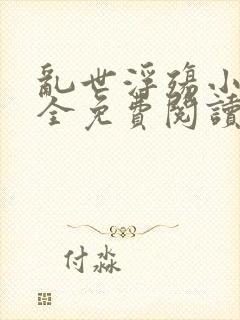 亂世浮殤小
全免費閱讀
付淼